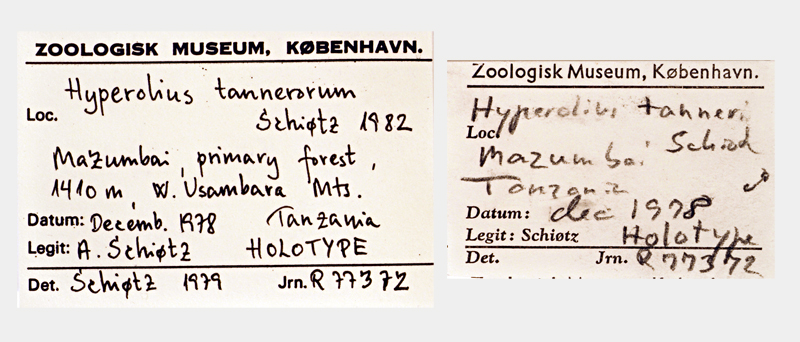 ZOOLOGISK MUSEUM, KØBENHAVN.
Hyperolius tannerorum
Loc. Schiøtz 1982
Mazumbai, primary forest,
1410 m, W. Usambara Mts.
Datum: Decemb. 1978 Tanzania
Legit: A. Schiøtz HOLOTYPE
Det. Schiøtz 1979 Jrn. R 77372
Zoologisk Museum, København.
Hyperolius tanneri
Loc. Schiøtz
Mazumbai
Tanzania
Datum: dec 1978
Legit: Schiøtz Holotype
Det. Jrn. R 77372